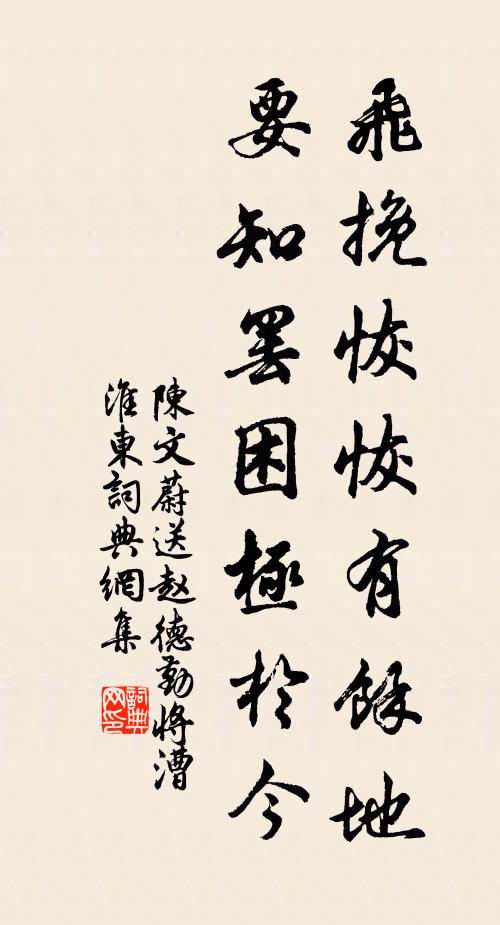 飛挽恢恢有餘地
要知罢困極於今
陳文蔚送赵德勤將漕
淮東詞典網集
詞典
网印